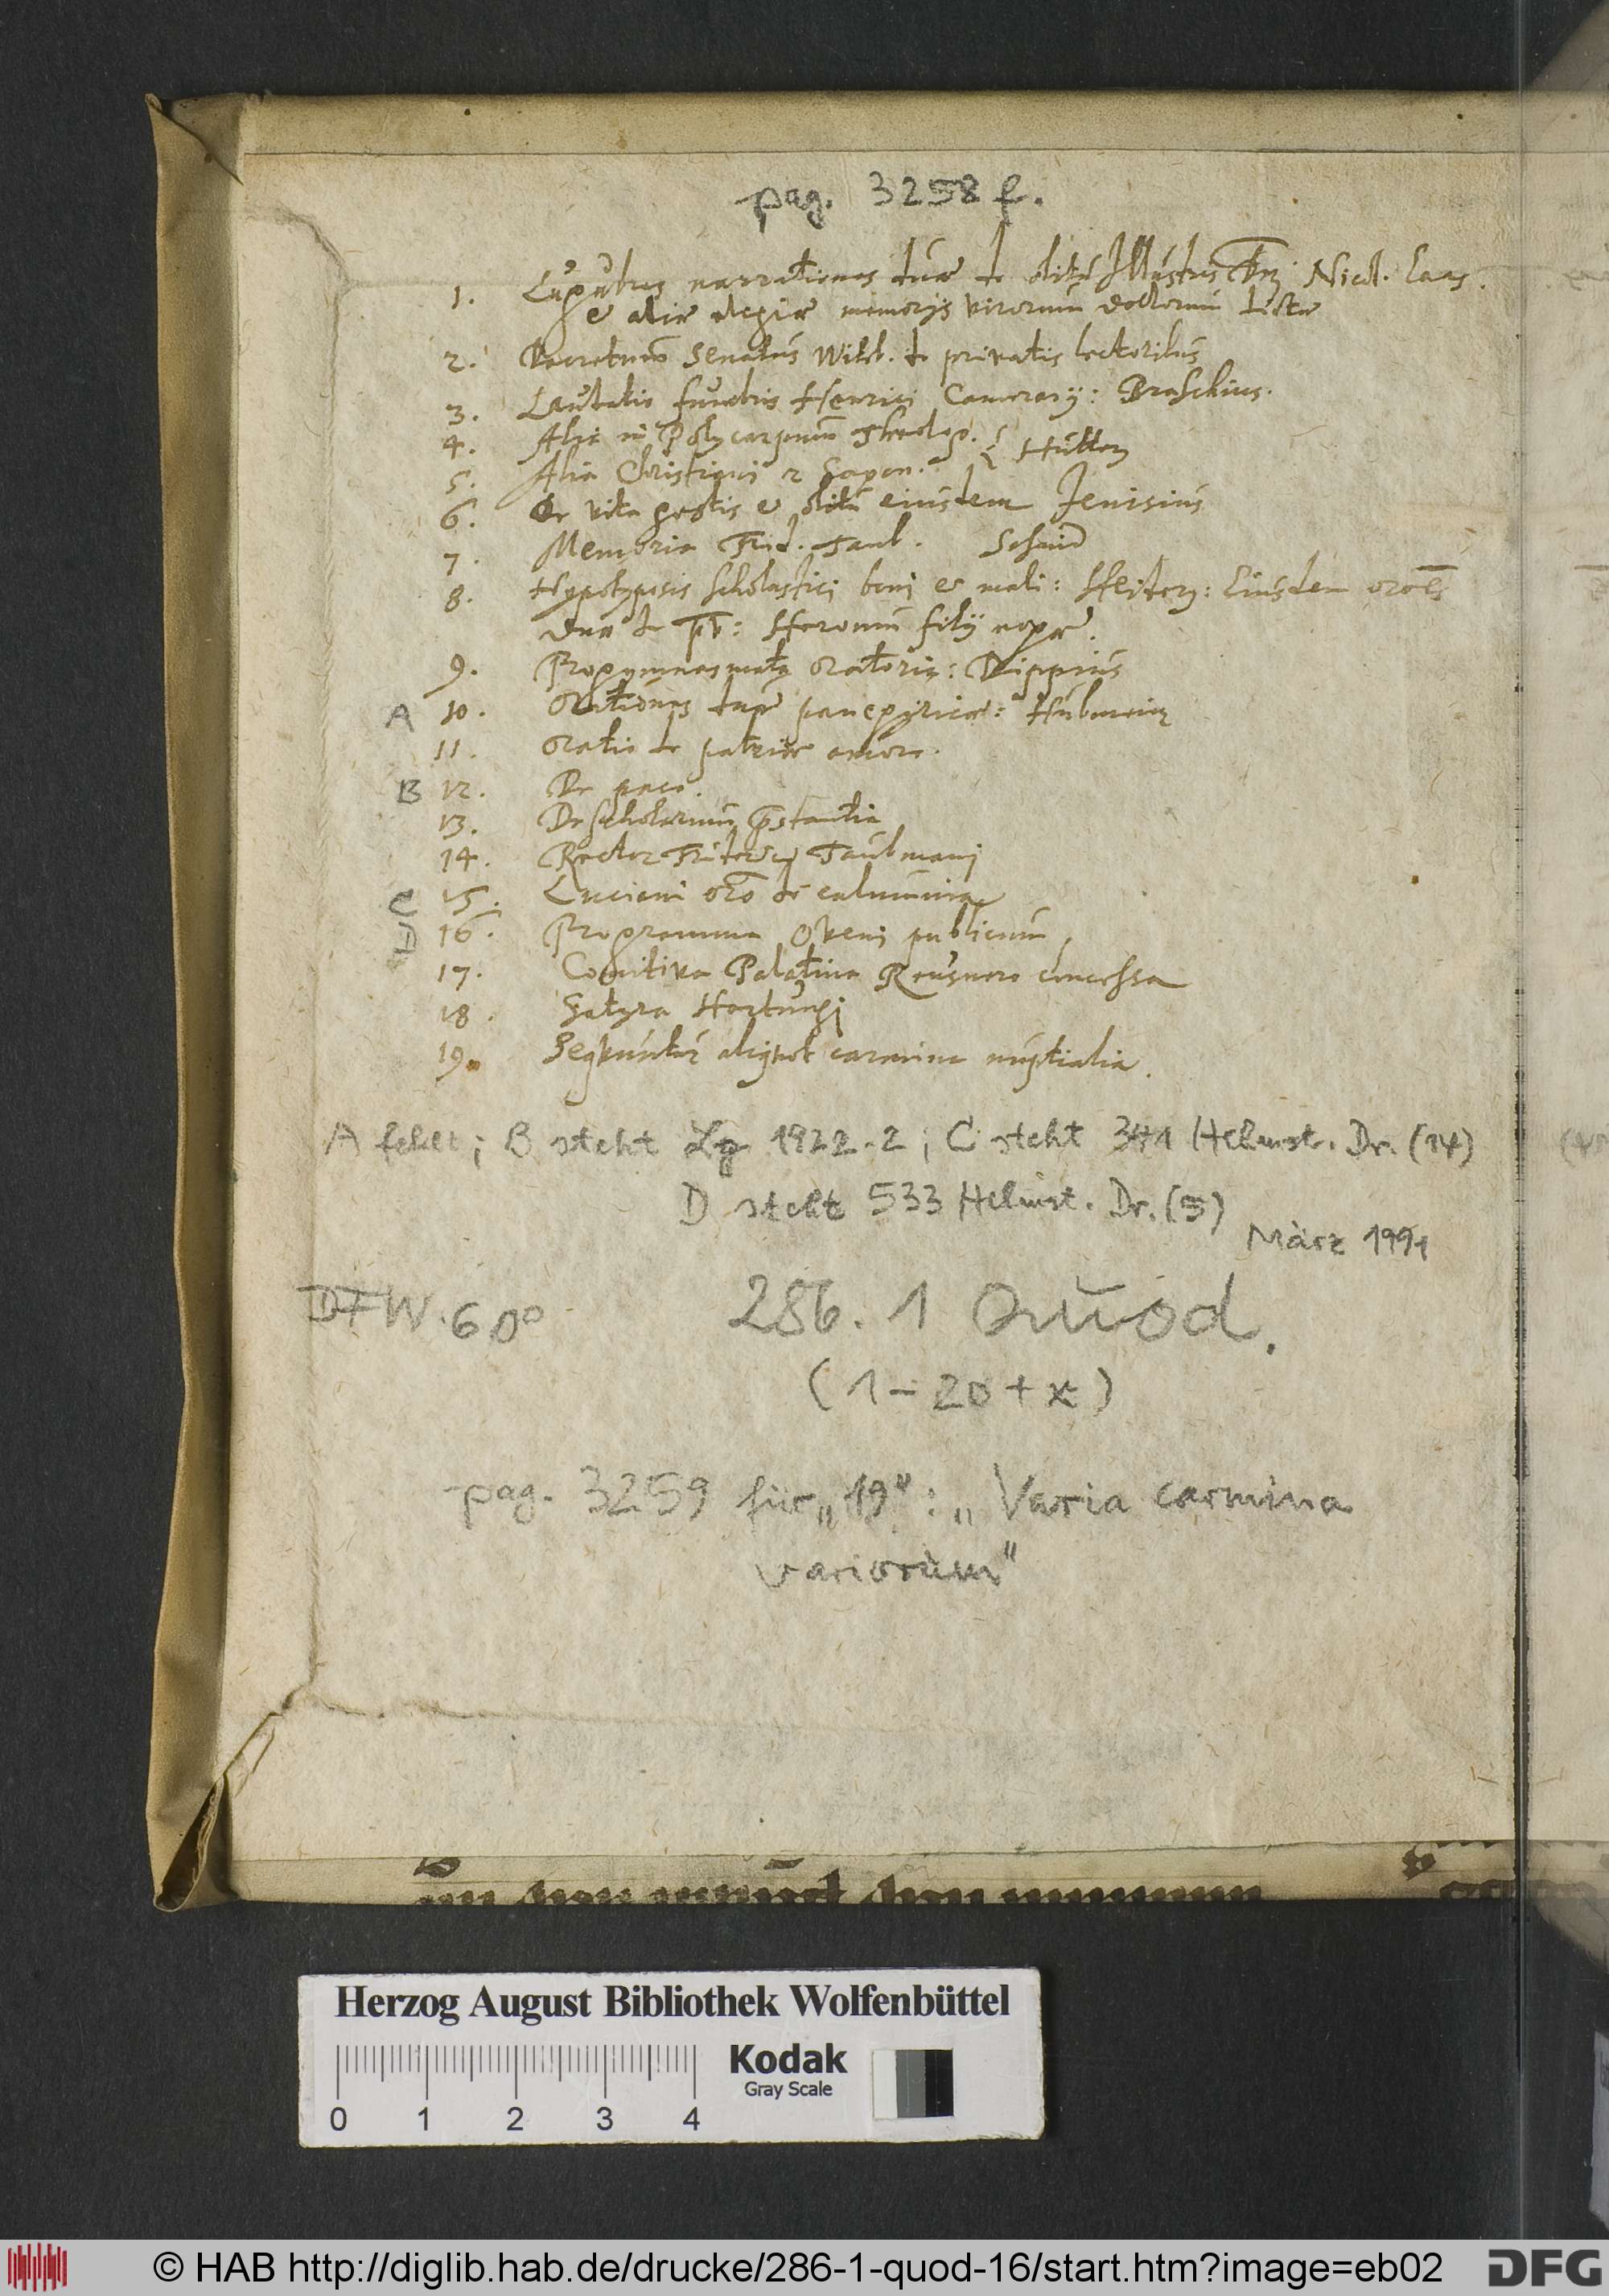 pag. 3258 f.
1. Lugubres narrationes duae de obitu Illustris Nicol.
& aliae elegiae memorijs virorum doctorum dictae
2. Decretum Senatus Witeb. de privatis lectoribus
3. Laudatio funebris Henrici Camerarij: Braschius.
4. Alia in Polycarpum Theolog. { Hutter
5. Alia Christiani 2 Saxon.
6. De vita gestis & obitu eiusdem Jenisius
7. Memoria Frid. Taub. Schmid
8. Hypotyposis scholastici boni & mali: Eiusdem
duae de
9. Progymnasmata oratoria: Dippius
A 10. Orationes duae panegyricae: Hubmeier
11. Oratio de patriae amore.
B 12. De pace.
13. De scholarum praestantia
14. Rector Friderici Taubmani
C 15. Luciani oro de calumnia
D 16. Programma Oveni publicum
17. Comitiva Palatina Reusnero concessa
18. Satyra Hortungi
19. Sequuntur aliquot carmina nuptialia.
A fehlt; B steht Lg 1922.2; C steht 341 Helmst. Dr. (14)
D steht 533 Helmst. Dr. (5)
März 1991
DFW. 60°
286. 1 Quod.
(1-20+x)
pag. 3259 für „19": „Varia carmina
variorum"
Herzog August Bibliothek Wolfenbüttel
Kodak
Gray Scale
0 1 2 3 4
© HAB http://diglib.hab.de/drucke/286-1-quod-16/start.htm?image=eb02
DFG